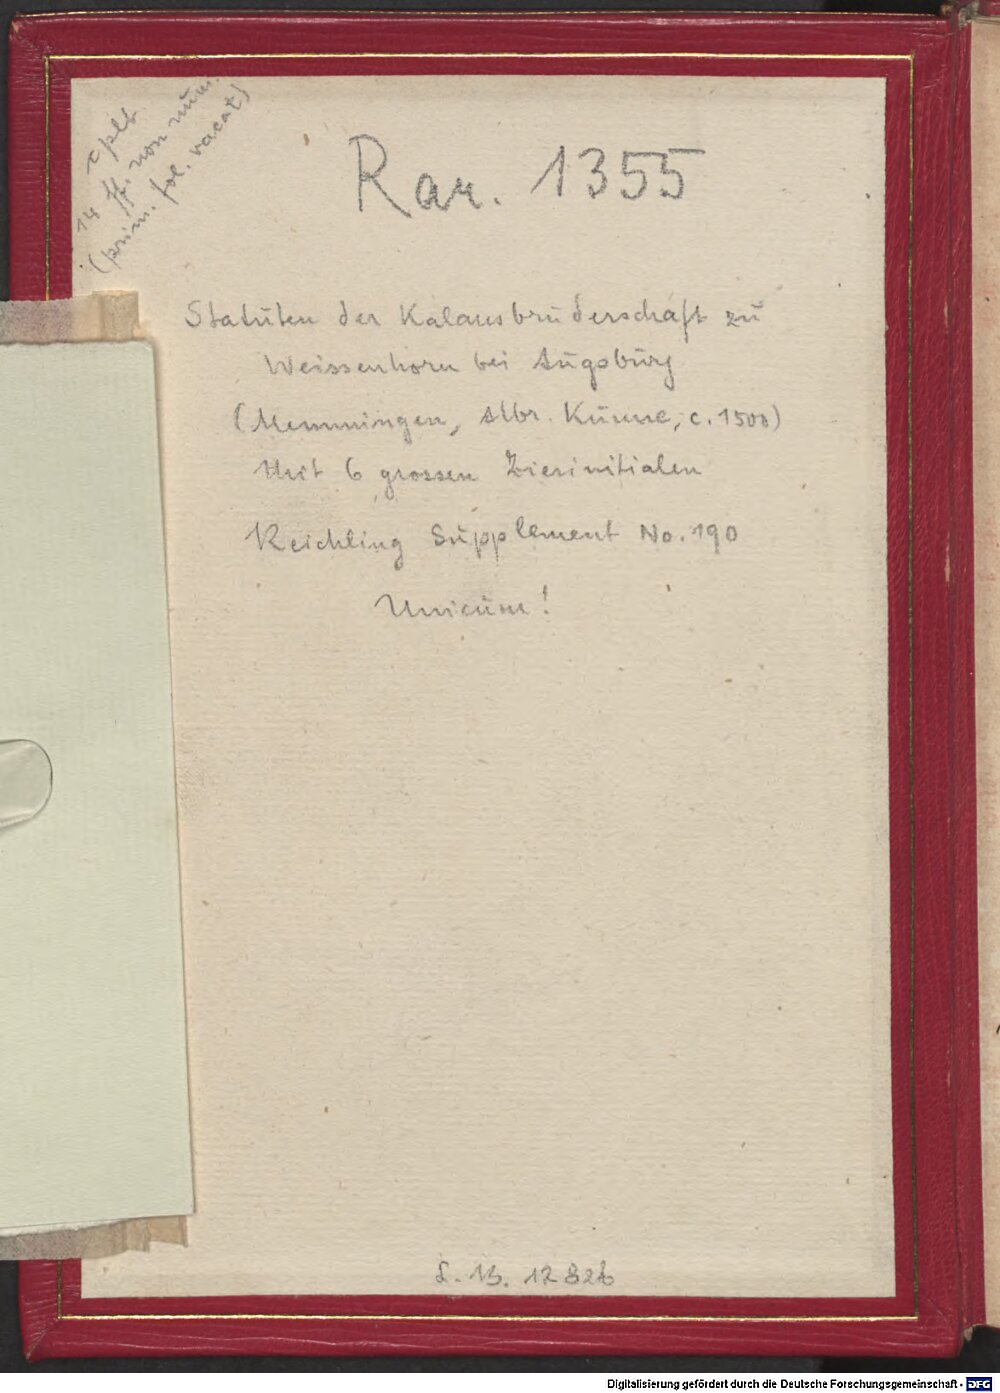 cplt.
14 ff. non num.
(prim. fol. vacat)
Rar. 1355
Statuten der Kalausbruderschaft zu
Weissenhorn bei Augsburg
(Memmingen, Albr. Kunne, c. 1500)
Mit 6 grossen Zierinitialen
Reichling Supplement No. 190
Unicum!
Digitalisierung gefördert durch die Deutsche Forschungsgemeinschaft - DFG